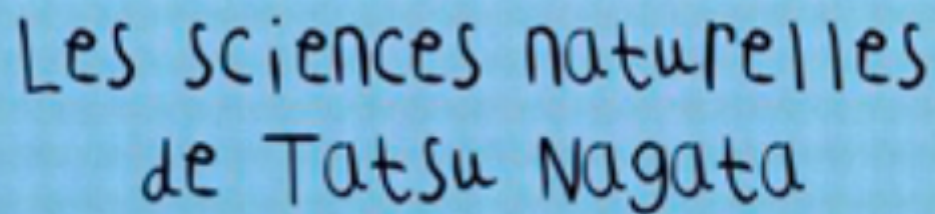 Les sciences naturelles
de Tatsu Nagata